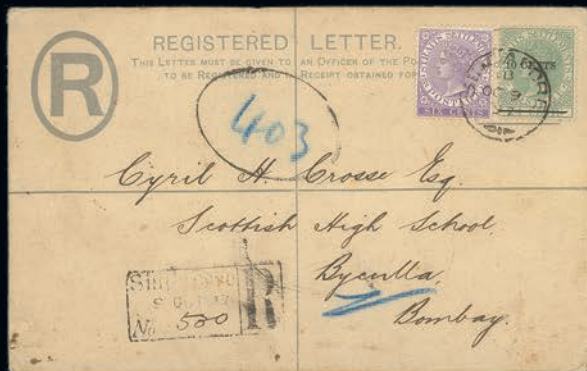 REGISTERED LETTER.
THIS LETTER MUST BE GIVEN TO AN OFFICER OF THE
TO BE REGISTERED AND RECEIPT OBTAINED FOR
R
STRAITS SETTLEMENTS
POSTAGE
SIX CENTS
10 CENTS
SINGAPORE
403
Cyril H. Crosse Esq.
Scottish High School.
Byculla
Bombay.
R
No 500